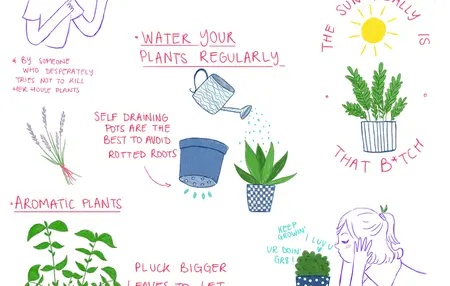 * BY SOMEONE
WHO DESPERATELY
TRIES NOT TO KILL
HER HOUSE PLANTS
• WATER YOUR
PLANTS REGULARLY
SELF DRAINING
POTS ARE THE
BEST TO AVOID
ROTTED ROOTS
THE SUN REALLY IS
THAT B*TCH
• AROMATIC PLANTS
PLUCK BIGGER
LEAVES TO LET
KEEP
GROWIN'
I LUV U
UR DOIN'
GR8!